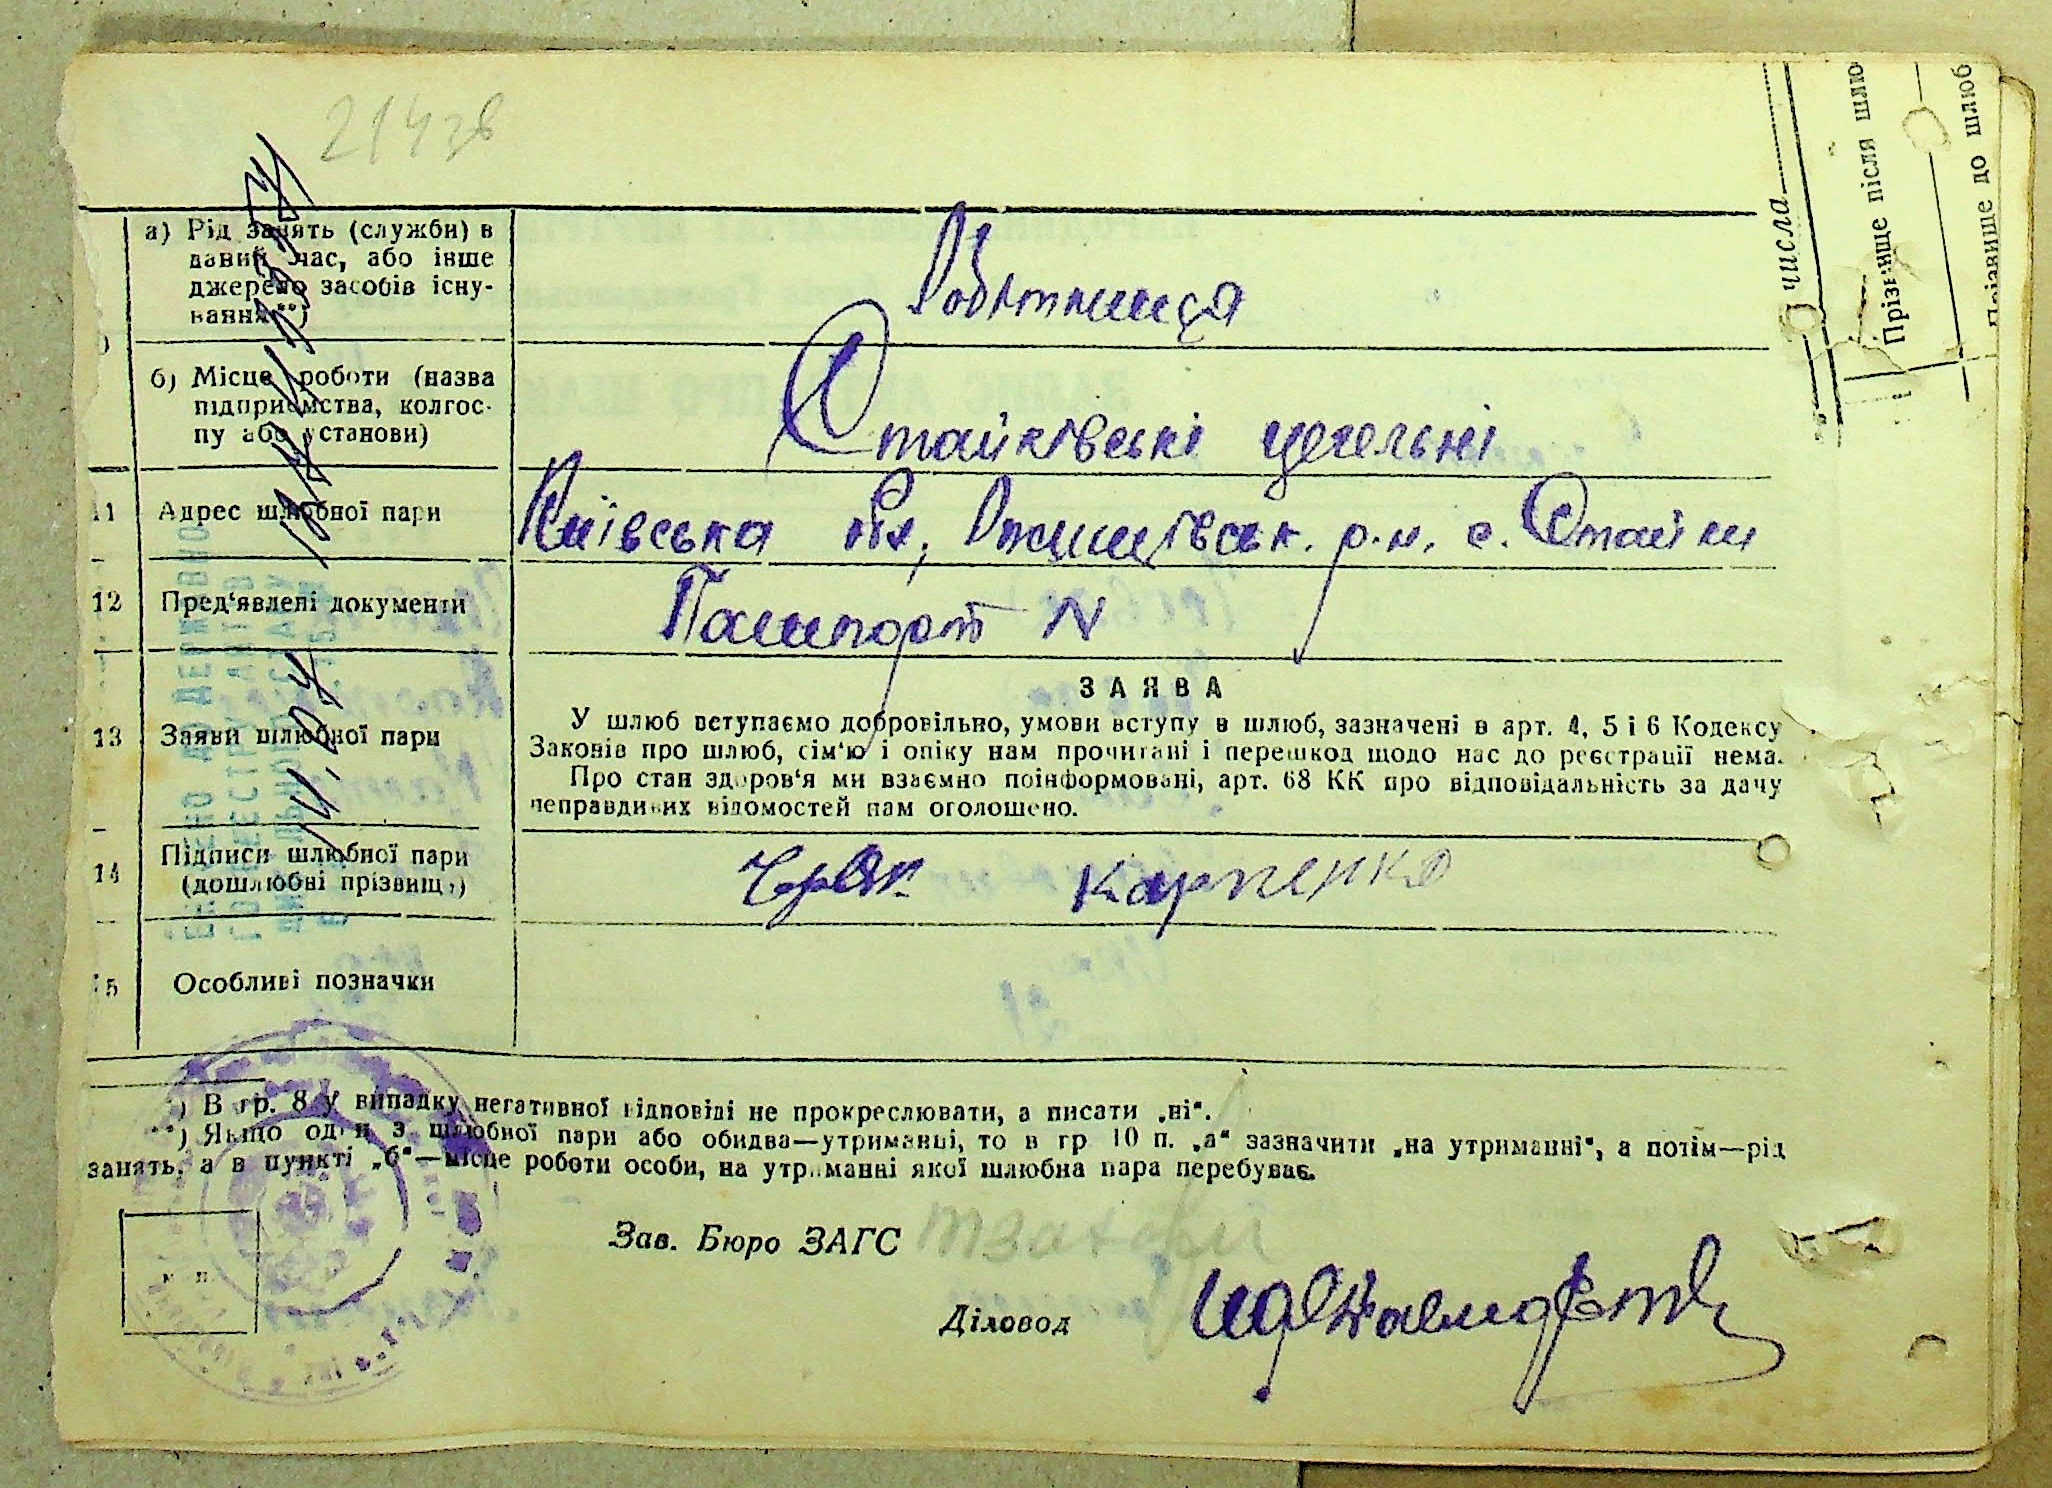 21438
а) Рід занять (служби) в
даний час, або інше
джерело засобів існу-
вання**)
Робітниця
б) Місце роботи (назва
підприємства, колгос-
пу або установи)
Стайківські цегельні
11 Адрес шлюбної пари
Київська обл, Ржищівськ. р.н. с. Стайки
12 Пред'явлені документи
Пашпорт N
13 Заяви шлюбної пари
ЗАЯВА
У шлюб вступаємо добровільно, умови вступу в шлюб, зазначені в арт. 4, 5 і 6 Кодексу
Законів про шлюб, сім'ю і опіку нам прочитані і перешкод щодо нас до реєстрації нема.
Про стан здоров'я ми взаємно поінформовані, арт. 68 КК про відповідальність за дачу
неправдивих відомостей нам оголошено.
14 Підписи шлюбної пари
(дошлюбні прізвища)
Карпенко
15 Особливі позначки
*) В гр. 8 у випадку негативної відповіді не прокреслювати, а писати „ні".
**) Якщо один з шлюбної пари або обидва—утриманці, то в гр 10 п. „а" зазначити „на утриманні", а потім—рід
занять, а в пункті „б"—місце роботи особи, на утриманні якої шлюбна пара перебуває.
м. п.
Зав. Бюро ЗАГС
Діловод
числа
Прізвище після шлю
Прізвище до шлюб